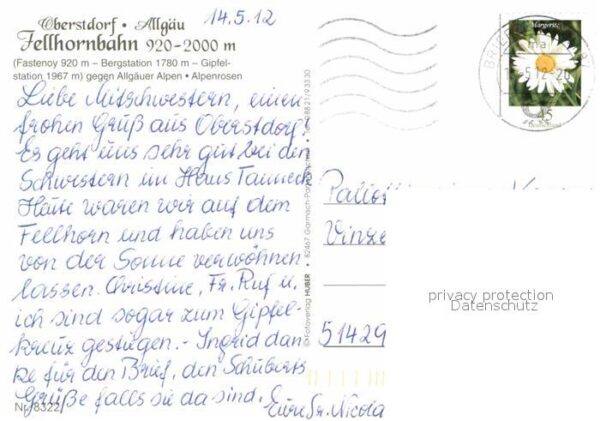 14.5.12
Oberstdorf • Allgäu
Fellhornbahn 920-2000 m
(Fastenoy 920 m – Bergstation 1780 m – Gipfel-
station 1967 m) gegen Allgäuer Alpen • Alpenrosen
Liebe Mitschwestern, einen
frohen Gruß aus Oberstdorf!
Es geht uns sehr gut bei den
Schwestern im Haus Tanneck
Heute waren wir auf dem
Fellhorn und haben uns
von der Sonne verwöhnen
lassen. Christine, Fr. Ruf u.
ich sind sogar zum Gipfel-
kreuz gestiegen. - Ingrid dan
ke für den Brief, den Schuberts
Grüße falls sie da sind.
Eure Sr. Nicola
Nr. 8322
© Fotoverlag HUBER • 82467 Garmisch-Partenkirchen
Margerite
45
Vinze
51429
privacy protection
Datenschutz